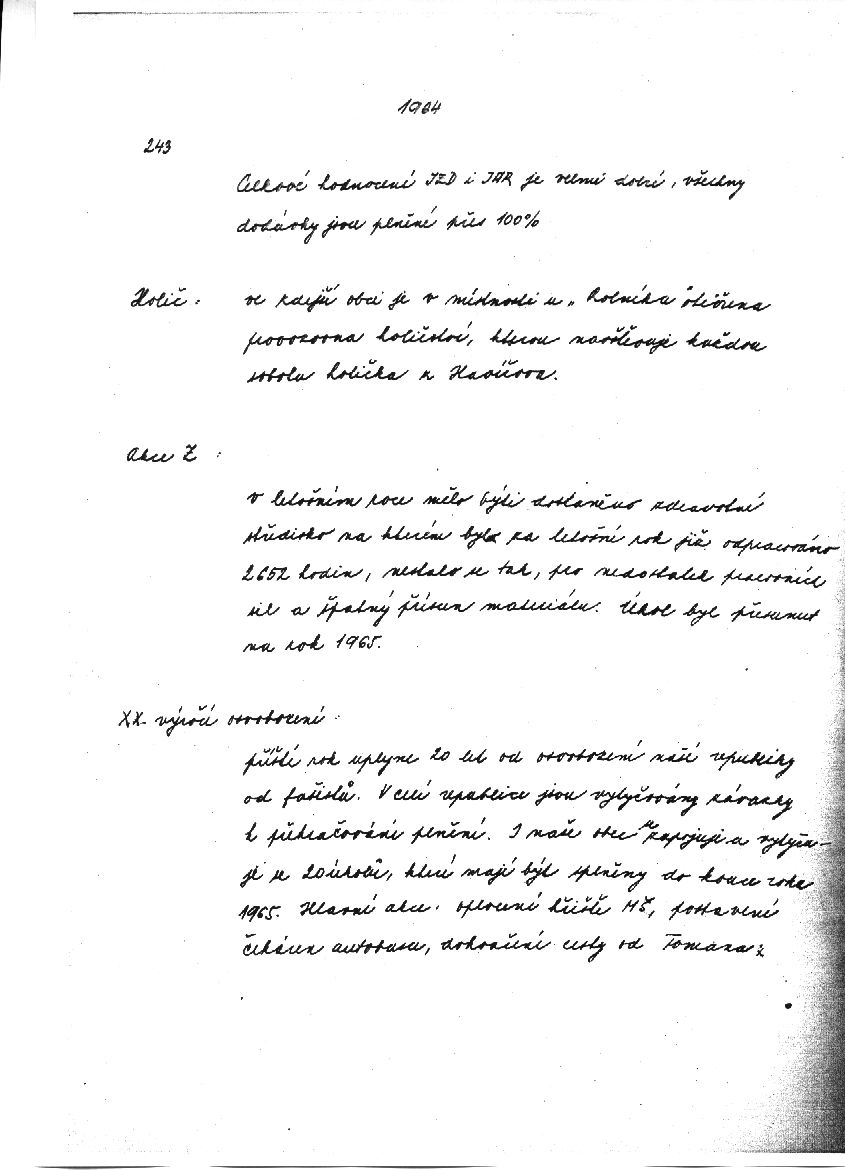 1964
243
Celkové hodnocení JZD i JAR je velmi dobré, všechny
dodávky jsou plněné přes 100%
Holič :
ve zdejší obci je v místnosti u „Rolníka" otevřena
provozovna holičství, kterou navštěvuje každou
sobotu holička z Havířova.
Akce Z :
v letošním roce mělo býti dostavěno zdravotní
středisko na kterém bylo za letošní rok již odpracováno
2652 hodin, nestalo se tak, pro nedostatek pracovních
sil a špatný přísun materiálu. Úkol byl přesunut
na rok 1965.
XX. výročí osvobození :
příští rok uplyne 20 let od osvobození naší republiky
od fašistů. V celé republice jsou vytyčovány závazky
k překračování plnění. I naše obec se zapojuje a vytyču-
je si 20 úkolů, které mají být splněny do konce roku
1965. Hlavní akce: oplocení hřiště MŠ, postavení
čekáren autobusu, dokončení cesty od Tomana z